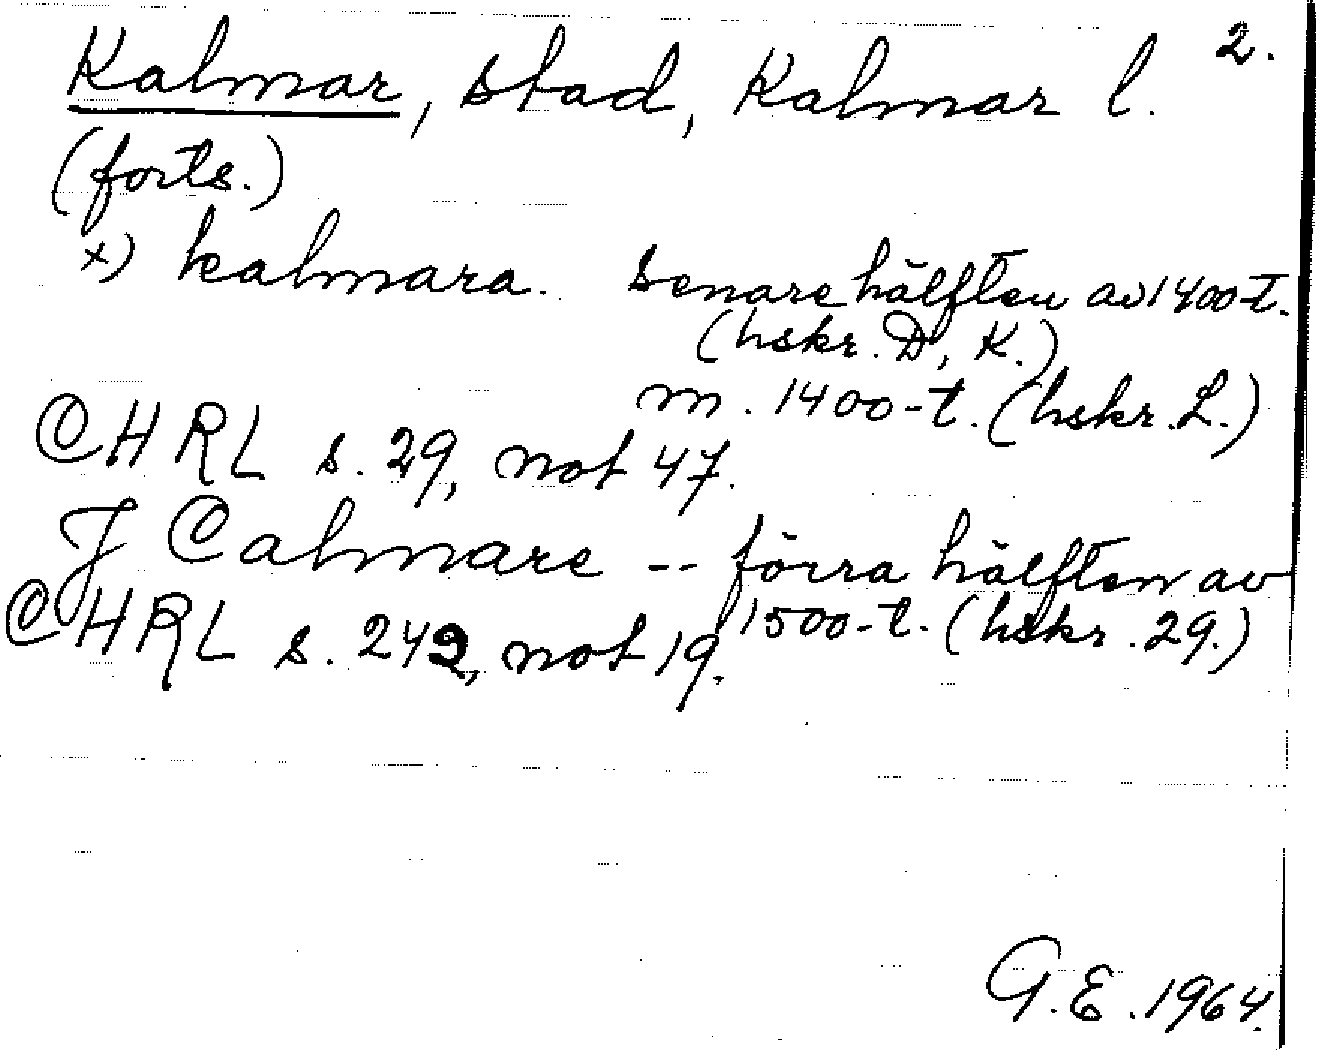 2.
Kalmar, stad, Kalmar l.
(forts.)
x) kalmara. Senare hälften av 1400-t.
(hskr. D, K.)
m. 1400-t. (hskr. L.)
CHRL s. 29, not 47.
J Calmare -- förra hälften av
1500-t. (hskr. 29.)
CHRL s. 242, not 19.
G.E. 1964.